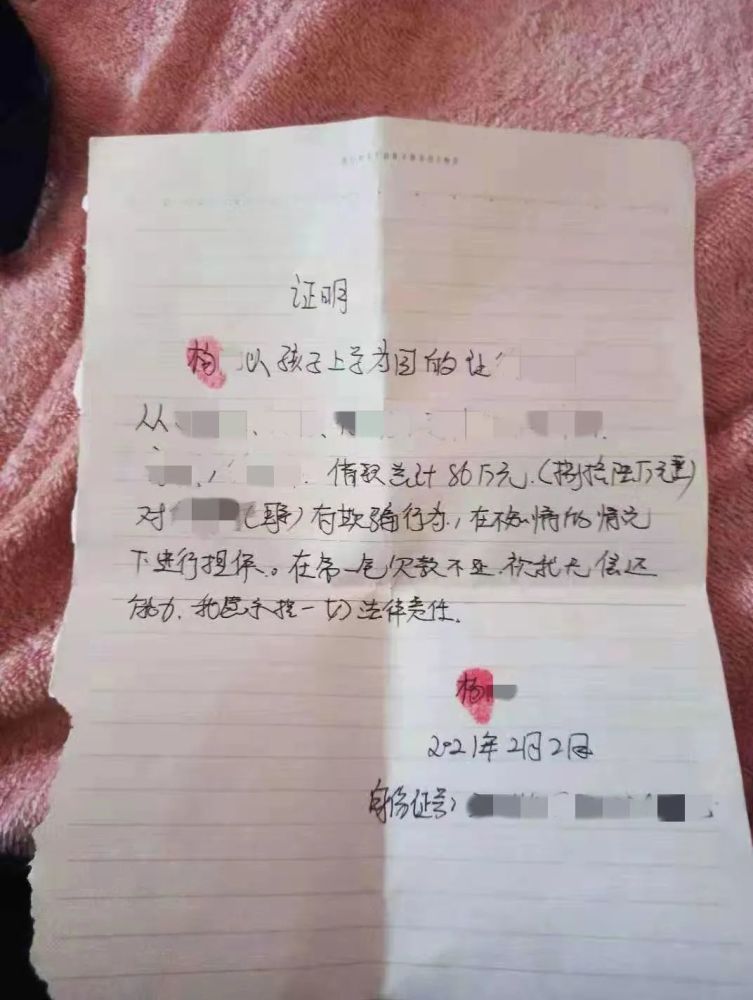 证明
杨 以孩子上学为目的让
从
借款总计86万元.(捌拾陆万元整)
对 ( ) 有欺骗行为,在不知情的情况
下进行担保。在 欠款不 我无偿还
能力.我愿承担一切法律责任.
杨
2021年2月2日
身份证号: